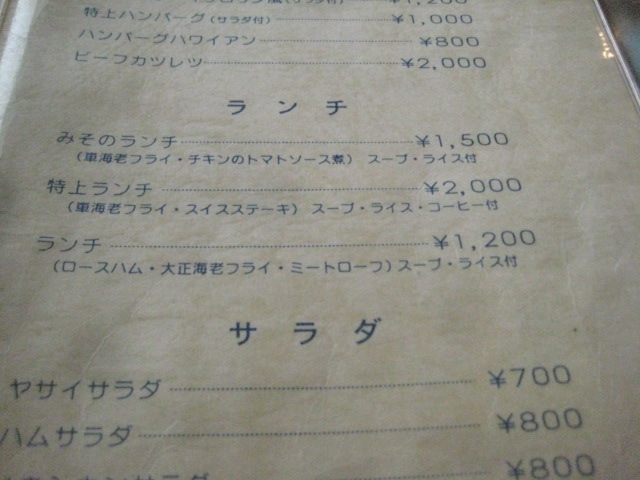 ¥1,200
特上ハンバーグ(サラダ付) ¥1,000
ハンバーグハワイアン ¥800
ビーフカツレツ ¥2,000
ランチ
みそのランチ ¥1,500
(車海老フライ・チキンのトマトソース煮) スープ・ライス付
特上ランチ ¥2,000
(車海老フライ・スイスステーキ) スープ・ライス・コーヒー付
ランチ ¥1,200
(ロースハム・大正海老フライ・ミートローフ)スープ・ライス付
サラダ
ヤサイサラダ ¥700
ハムサラダ ¥800
サラダ ¥800